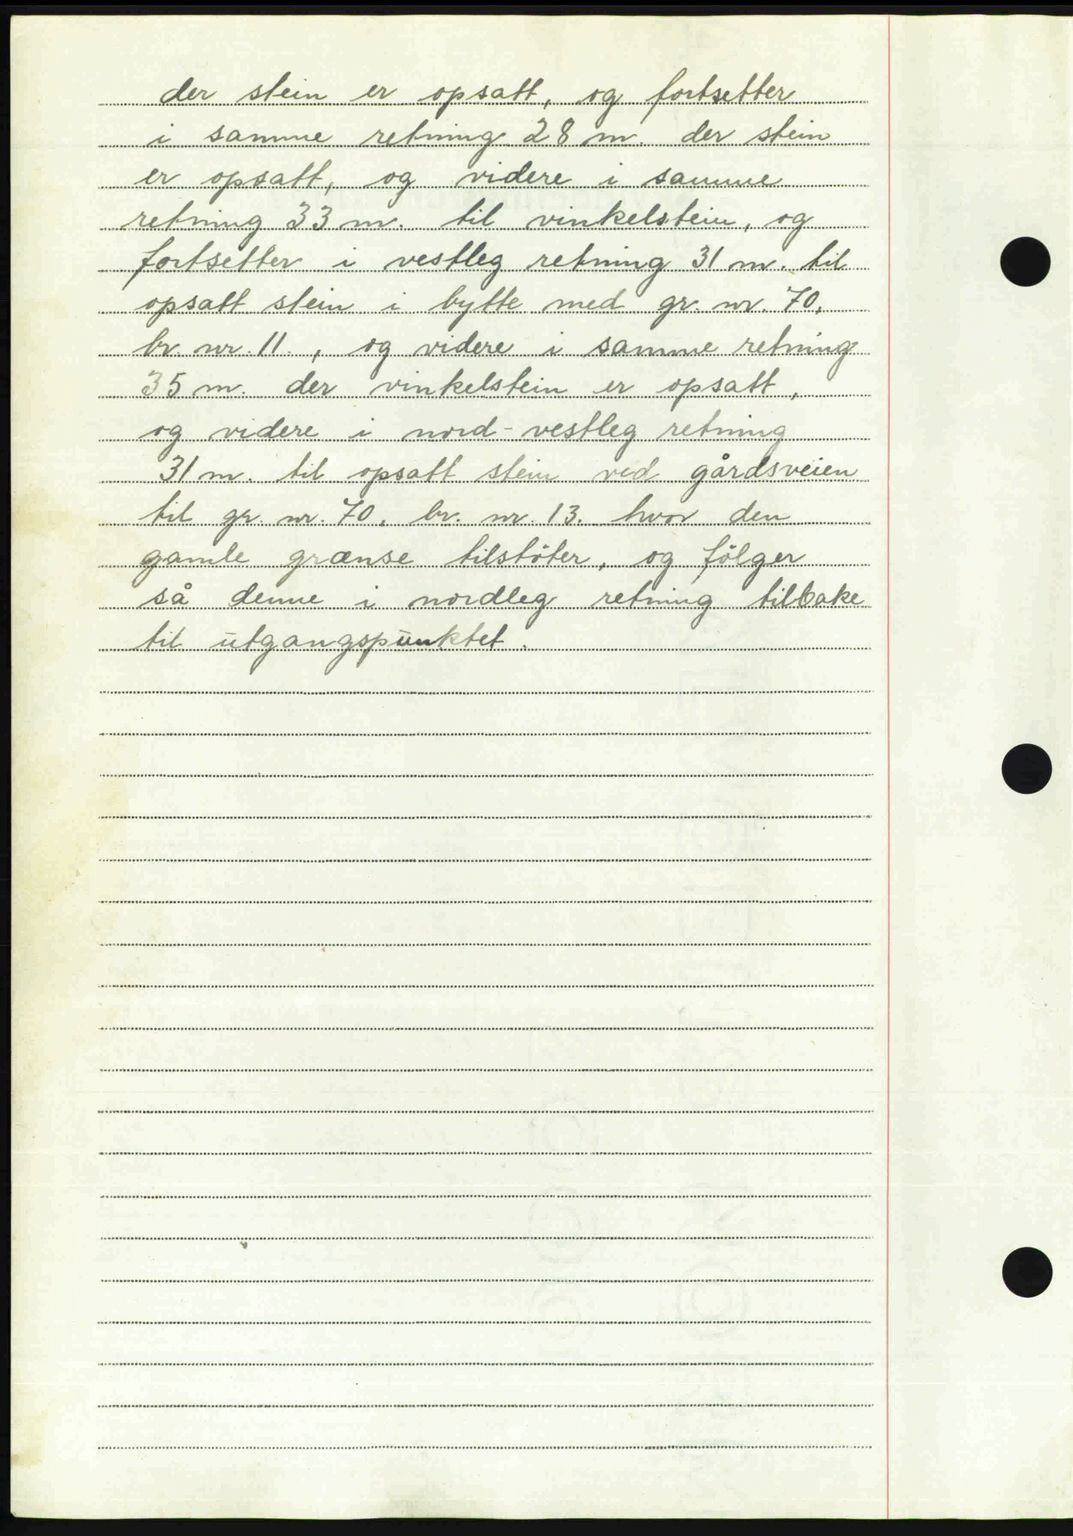 der stein er opsatt, og fortsetter
i samme retning 28 m. der stein
er opsatt, og videre i samme
retning 33 m. til vinkelstein, og
fortsetter i vestleg retning 31 m. til
opsatt stein i bytte med gr. nr. 70,
br. nr. 11., og videre i samme retning
35 m. der vinkelstein er opsatt,
og videre i nord-vestleg retning
31 m. til opsatt stein ved gårdsveien
til gr. nr. 70, br. nr. 13. hvor den
gamle grænse tilstöter, og fölger
så denne i nordleg retning tilbake
til utgangspunktet.